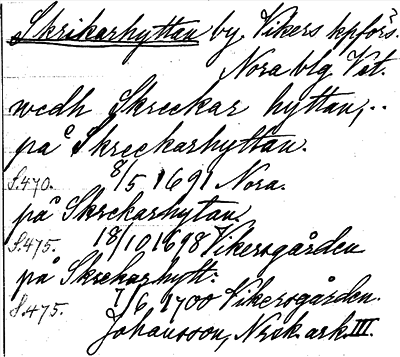 Skrikarhyttan by, Vikers kpförs.
Nora blg. Vst.
wedh Skreckar hyttan, ..
på Skreckarhyttan.
S. 470. 8/5 1691 Nora.
på Skrekarhytan.
S. 475. 18/10 1698 Vikersgården
på Skrekarhytt:
S. 475. 7/6 1700 Vikersgården.
Johansson, Nxsk ark. III.